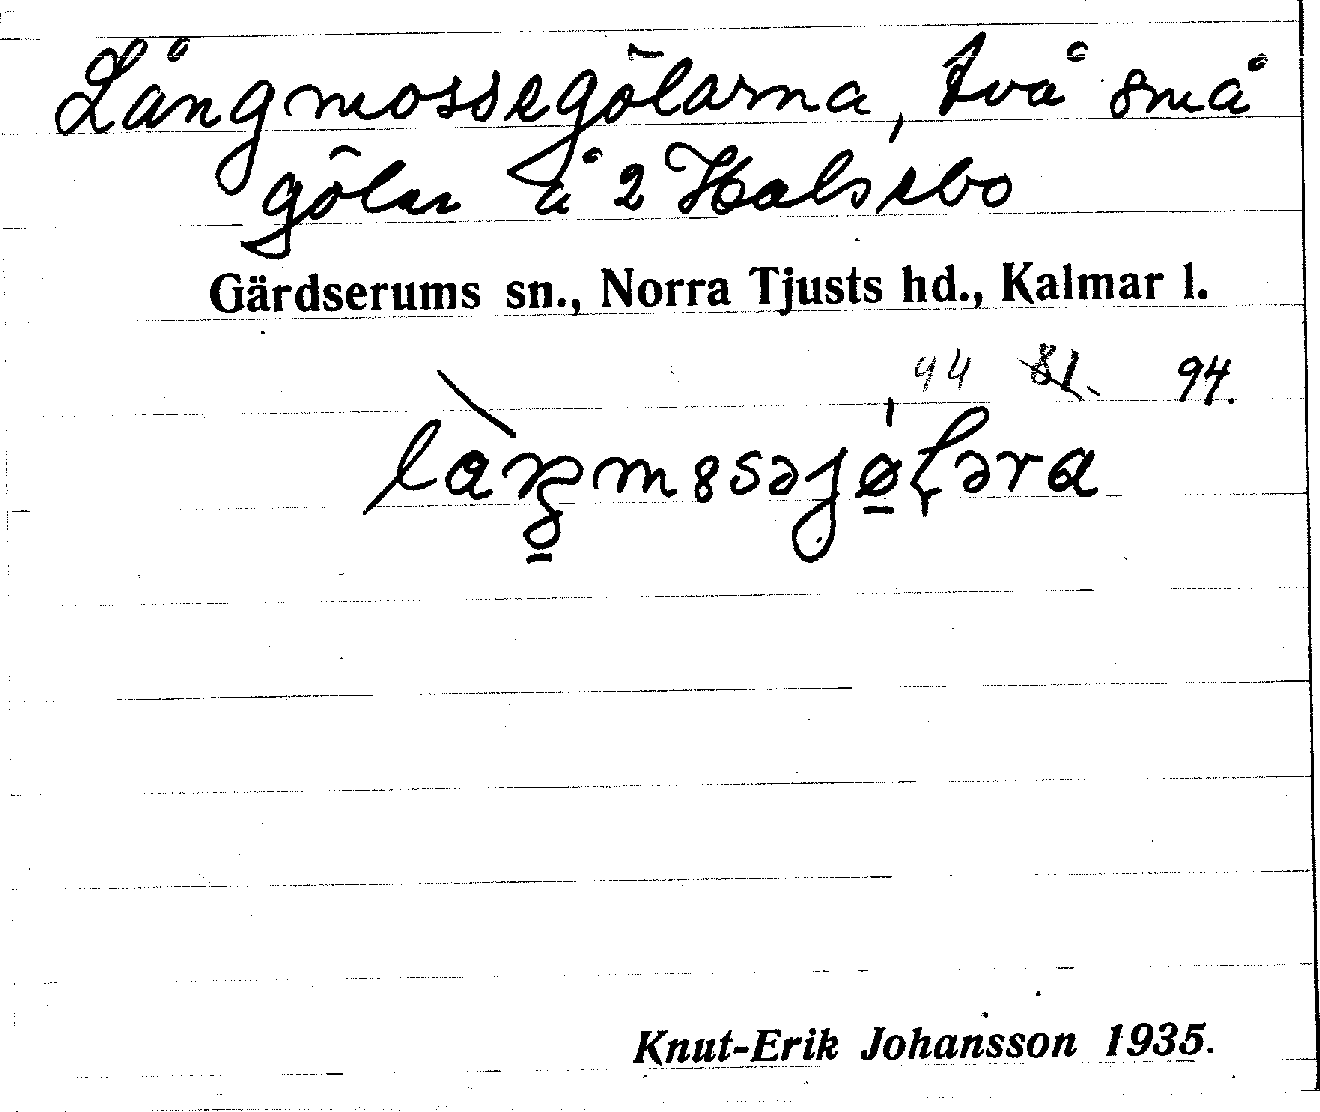 Långmossegölarna, två små
gölar å 2 Halsebo
Gärdserums sn., Norra Tjusts hd., Kalmar l.
94 81. 94.
Knut-Erik Johansson 1935.